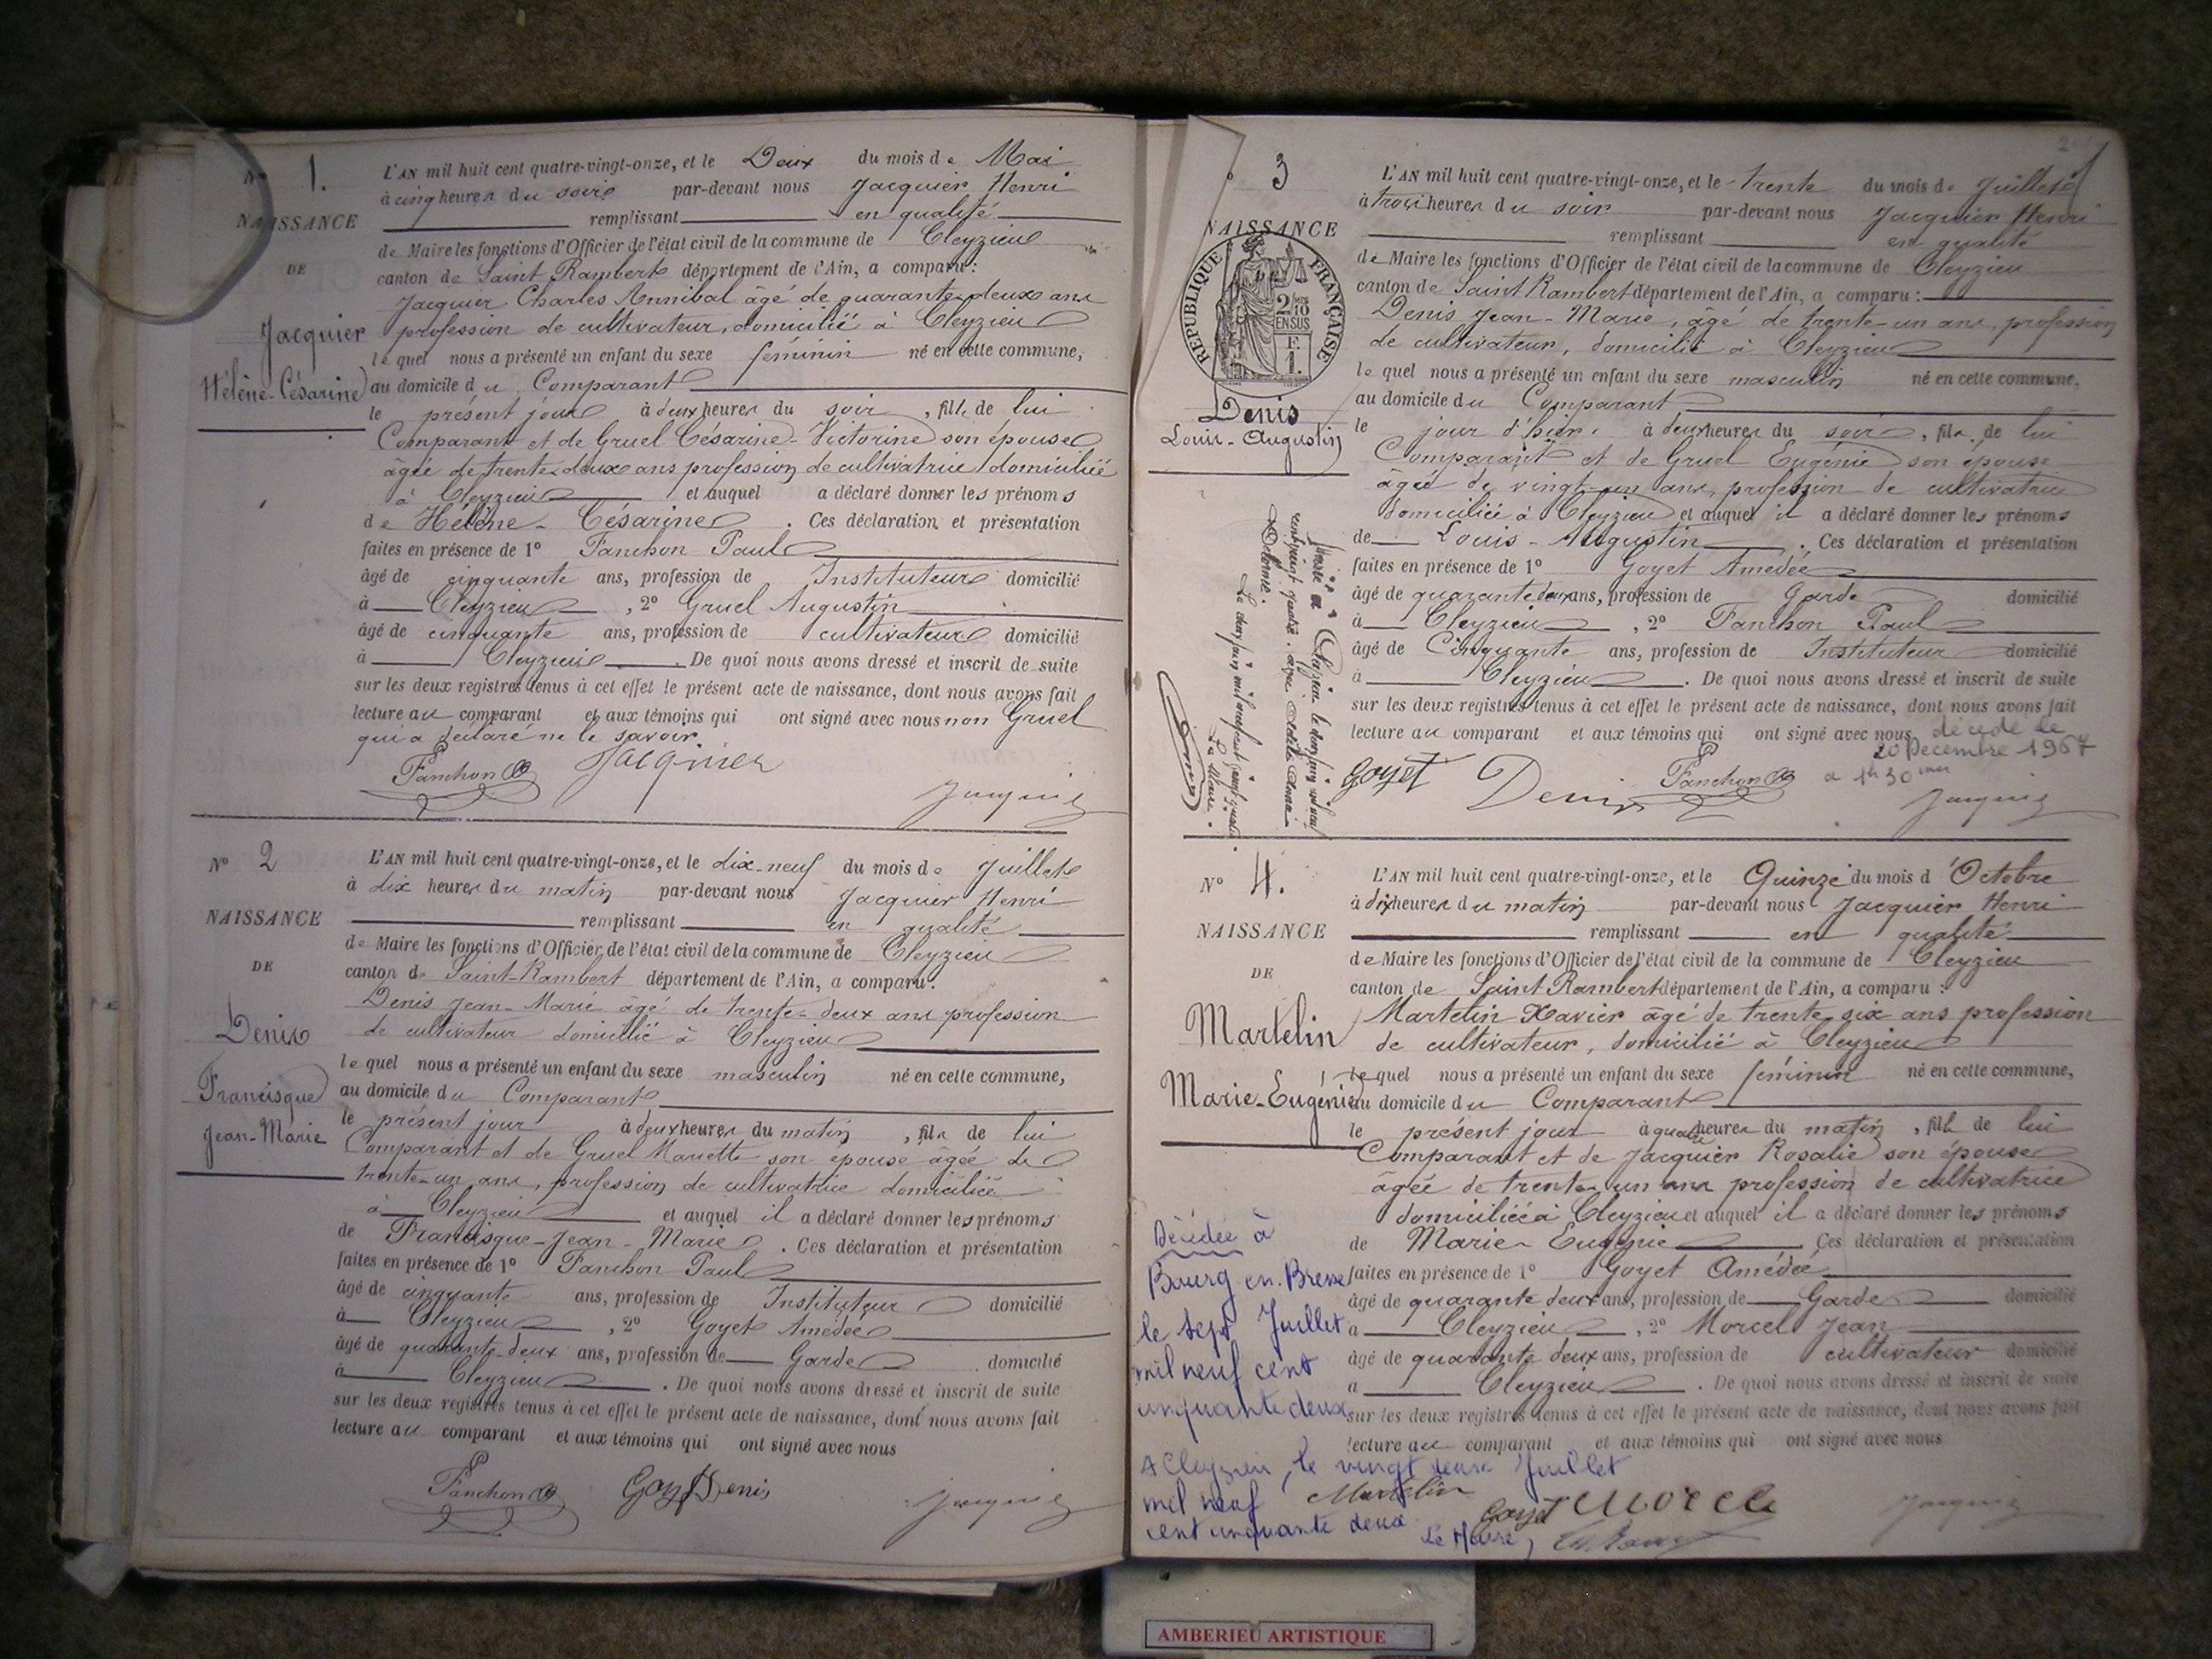 N° 1.
NAISSANCE
DE
Jacquier
Hélène-Césarine
L'AN mil huit cent quatre-vingt-onze, et le Deux du mois de Mai
à cinq heures du soir par-devant nous Jacquier Henri
remplissant en qualité
de Maire les fonctions d'Officier de l'état civil de la commune de Cleyzieu
canton de Saint Rambert département de l'Ain, a comparu :
Jacquier Charles Annibal âgé de quarante-deux ans
profession de cultivateur, domicilié à Cleyzieu
le quel nous a présenté un enfant du sexe féminin né en cette commune,
au domicile du Comparant
le présent jour à deux heures du soir, fille de lui
Comparant et de Gruel Césarine-Victorine son épouse
âgée de trente-deux ans profession de cultivatrice domiciliée
à Cleyzieu et auquel a déclaré donner les prénoms
de Hélène-Césarine. Ces déclaration et présentation
faites en présence de 1° Fanchon Paul
âgé de cinquante ans, profession de Instituteur domicilié
à Cleyzieu, 2° Gruel Augustin
âgé de cinquante ans, profession de cultivateur domicilié
à Cleyzieu. De quoi nous avons dressé et inscrit de suite
sur les deux registres tenus à cet effet le présent acte de naissance, dont nous avons fait
lecture au comparant et aux témoins qui ont signé avec nous non Gruel
qui a déclaré ne le savoir
Fanchon Jacquier Jacquier
N° 2
NAISSANCE
DE
Denis
Francisque
Jean-Marie
L'AN mil huit cent quatre-vingt-onze, et le dix-neuf du mois de Juillet
à dix heures du matin par-devant nous Jacquier Henri
remplissant en qualité
de Maire les fonctions d'Officier de l'état civil de la commune de Cleyzieu
canton de Saint-Rambert département de l'Ain, a comparu :
Denis Jean-Marie âgé de trente-deux ans profession
de cultivateur domicilié à Cleyzieu
le quel nous a présenté un enfant du sexe masculin né en cette commune,
au domicile du Comparant
le présent jour à deux heures du matin, fils de lui
Comparant et de Gruel Mariette son épouse âgée de
trente-un ans, profession de cultivatrice domiciliée
à Cleyzieu et auquel il a déclaré donner les prénoms
de Francisque-Jean-Marie. Ces déclaration et présentation
faites en présence de 1° Fanchon Paul
âgé de cinquante ans, profession de Instituteur domicilié
à Cleyzieu, 2° Goyet Amédée
âgé de quarante-deux ans, profession de Garde domicilié
à Cleyzieu. De quoi nous avons dressé et inscrit de suite
sur les deux registres tenus à cet effet le présent acte de naissance, dont nous avons fait
lecture au comparant et aux témoins qui ont signé avec nous
Fanchon Goyet Denis Jacquier
3
NAISSANCE
REPUBLIQUE FRANÇAISE
2/10
EN SUS
F.
1.
Denis
Louis-Augustin
L'AN mil huit cent quatre-vingt-onze, et le trente du mois de Juillet
à trois heures du soir par-devant nous Jacquier Henri
remplissant en qualité
de Maire les fonctions d'Officier de l'état civil de la commune de Cleyzieu
canton de Saint Rambert département de l'Ain, a comparu :
Denis Jean-Marie, âgé de trente-un ans, profession
de cultivateur, domicilié à Cleyzieu
le quel nous a présenté un enfant du sexe masculin né en cette commune,
au domicile du Comparant
le jour d'hier à deux heures du soir, fils de lui
Comparant et de Gruel Eugénie son épouse
âgée de vingt-un ans, profession de cultivatrice
domiciliée à Cleyzieu et auquel il a déclaré donner les prénoms
de Louis-Augustin. Ces déclaration et présentation
faites en présence de 1° Goyet Amédée
âgé de quarante deux ans, profession de Garde domicilié
à Cleyzieu, 2° Fanchon Paul
âgé de Cinquante ans, profession de Instituteur domicilié
à Cleyzieu. De quoi nous avons dressé et inscrit de suite
sur les deux registres tenus à cet effet le présent acte de naissance, dont nous avons fait
lecture au comparant et aux témoins qui ont signé avec nous
décédé le
20 Décembre 1967
a 1h 30
Goyet Denis Fanchon Jacquier
à Cleyzieu le
vingt quatre, avec
Delorme.
Le Maire.
N° 4.
NAISSANCE
DE
Martelin
Marie-Eugénie
L'AN mil huit cent quatre-vingt-onze, et le Quinze du mois d'Octobre
à dix heures du matin par-devant nous Jacquier Henri
remplissant en qualité
de Maire les fonctions d'Officier de l'état civil de la commune de Cleyzieu
canton de Saint Rambert département de l'Ain, a comparu :
Martelin Xavier âgé de trente six ans profession
de cultivateur, domicilié à Cleyzieu
le quel nous a présenté un enfant du sexe féminin né en cette commune,
au domicile du Comparant
le présent jour à quatre heures du matin, fille de lui
Comparant et de Jacquier Rosalie son épouse
âgée de trente-un ans profession de cultivatrice
domiciliée à Cleyzieu et auquel il a déclaré donner les prénoms
de Marie-Eugénie Ces déclaration et présentation
faites en présence de 1° Goyet Amédée
âgé de quarante deux ans, profession de Garde domicilié
à Cleyzieu, 2° Morcel Jean
âgé de quarante deux ans, profession de cultivateur domicilié
à Cleyzieu. De quoi nous avons dressé et inscrit de suite
sur les deux registres tenus à cet effet le présent acte de naissance, dont nous avons fait
lecture au comparant et aux témoins qui ont signé avec nous
Martelin Goyet Morcel Jacquier
Décédée à
Bourg en Bresse
le sept Juillet
mil neuf cent
cinquante deux
A Cleyzieu, le vingt deux Juillet
mil neuf
cent cinquante deux
Le Maire,
AMBERIEU ARTISTIQUE